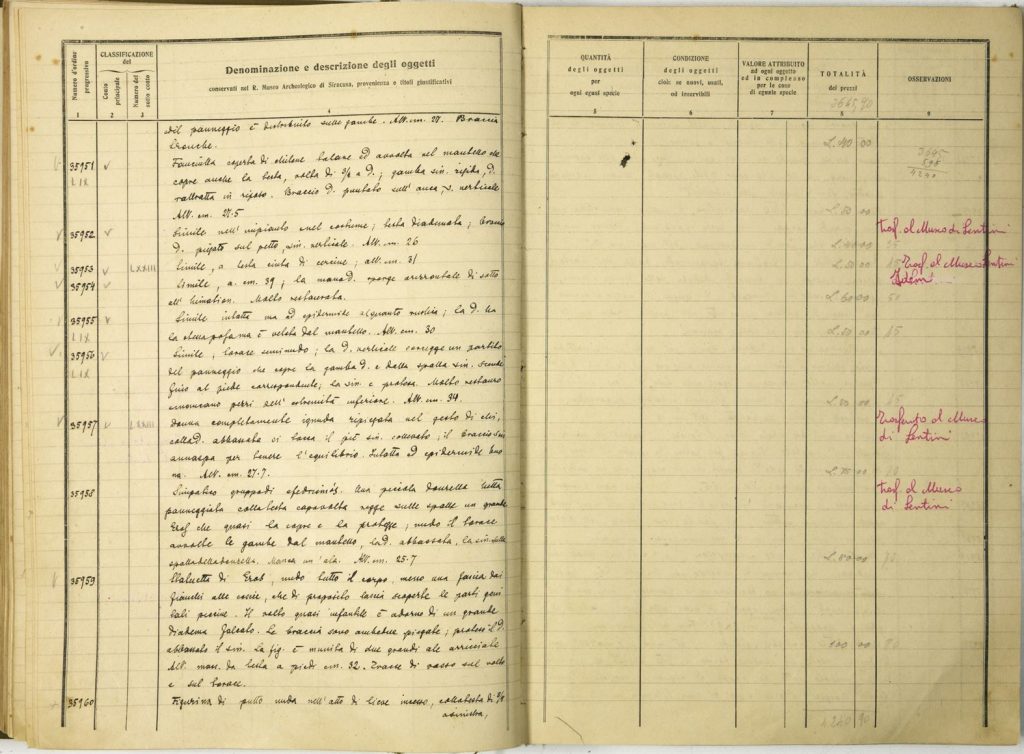 Numero d'ordine progressivo
CLASSIFICAZIONE del
Conto principale
Numero del sotto conto
Denominazione e descrizione degli oggetti
conservati nel R. Museo Archeologico di Siracusa, provenienza e titoli giustificativi
1 2 3 4
del panneggio è distribuito sulle gambe. Alt. cm. 27. Braccia
tronche.
35951 Fanciulla coperta di chitone talare ed avvolta nel mantello che
LIX copre anche la testa, volta di 3/4 a d.; gamba sin. rigida, d.
ralluatta in riposo. Braccio d. puntato sull'anca, s. verticale
Alt. cm. 27.5
35952 Simile nell'impianto e nel costume; testa diademata; braccio
d. piegato sul petto, sin. verticale. Alt. cm. 26
35953 LXXIII Simile, a testa cinta di cercine; alt. cm. 31
35954 Simile, a. cm. 39; la mano d. sporge orizzontale di sotto
all'himation. Molto restaurata.
35955 Simile intatta ma ad epidermide alquanto; la d. ha
LIX è velata dal mantello. Alt. cm. 30
35956 Simile, torace seminudo; la d. verticale corregge un partito
LIX del panneggio che copre la gamba d. e dalla spalla sin. scende
fino al piede corrispondente; la sin. è protesa. Molto restauro
mancano pezzi nell'estremità inferiore. Alt. cm. 34.
35957 LXXIII Donna completamente ignuda ripiegata nel gesto di chi,
colla d. abbassata si tocca il piè sin. sollevato; il braccio sin.
annaspa per tenere l'equilibrio. Intatta ed epidermide buo
na. Alt. cm. 27.7.
35958 Simpatico gruppo di efedrismós. Una piccola donzella tutta
panneggiata colla testa capovolta regge sulle spalle un grande
Eros che quasi la copre e la protegge; nudo il torace
avvolte le gambe dal mantello, la d. abbassata, la sin. sulla
spalla della donzella. Manca un'ala. Alt. cm. 25.7
35959 Statuetta di Eros, nudo tutto il corpo, meno una fascia dai
fianchi alle coscie, che di proposito lascia scoperte le parti geni
tali piccine. Il volto quasi infantile è adorno di un grande
diadema falcato. Le braccia sono ambedue piegate; proteso il d.
abbassato il sin. La fig. è munita di due grandi ali arricciate
Alt. mass. da testa a piedi cm. 32. Tracce di rosso sul volto
e sul torace.
35960 Figurina di putto nudo nell'atto di incesso, colla testa di 3/4
a sinistra,
QUANTITÀ degli oggetti per ogni sugai specie
CONDIZIONE degli oggetti cioè: se nuovi, usati, od inservibili
VALORE ATTRIBUITO ad ogni oggetto ed in complesso per le cose di eguale specie
TOTALITÀ dei prezzi
OSSERVAZIONI
3645,90
5 6 7 8 9
L. 140 00
3645
595
4240
L. 50 00
Trasf. al Museo di Lentini
L. 40 00
L. 50 00 Trasf. al Museo Lentini
Idem
L. 60 00
L. 50 00
L. 50 00
Trasferito al Museo
di Lentini
L. 75 00
Trasf. al Museo
di Lentini
L. 80 00
100 00
4240 90